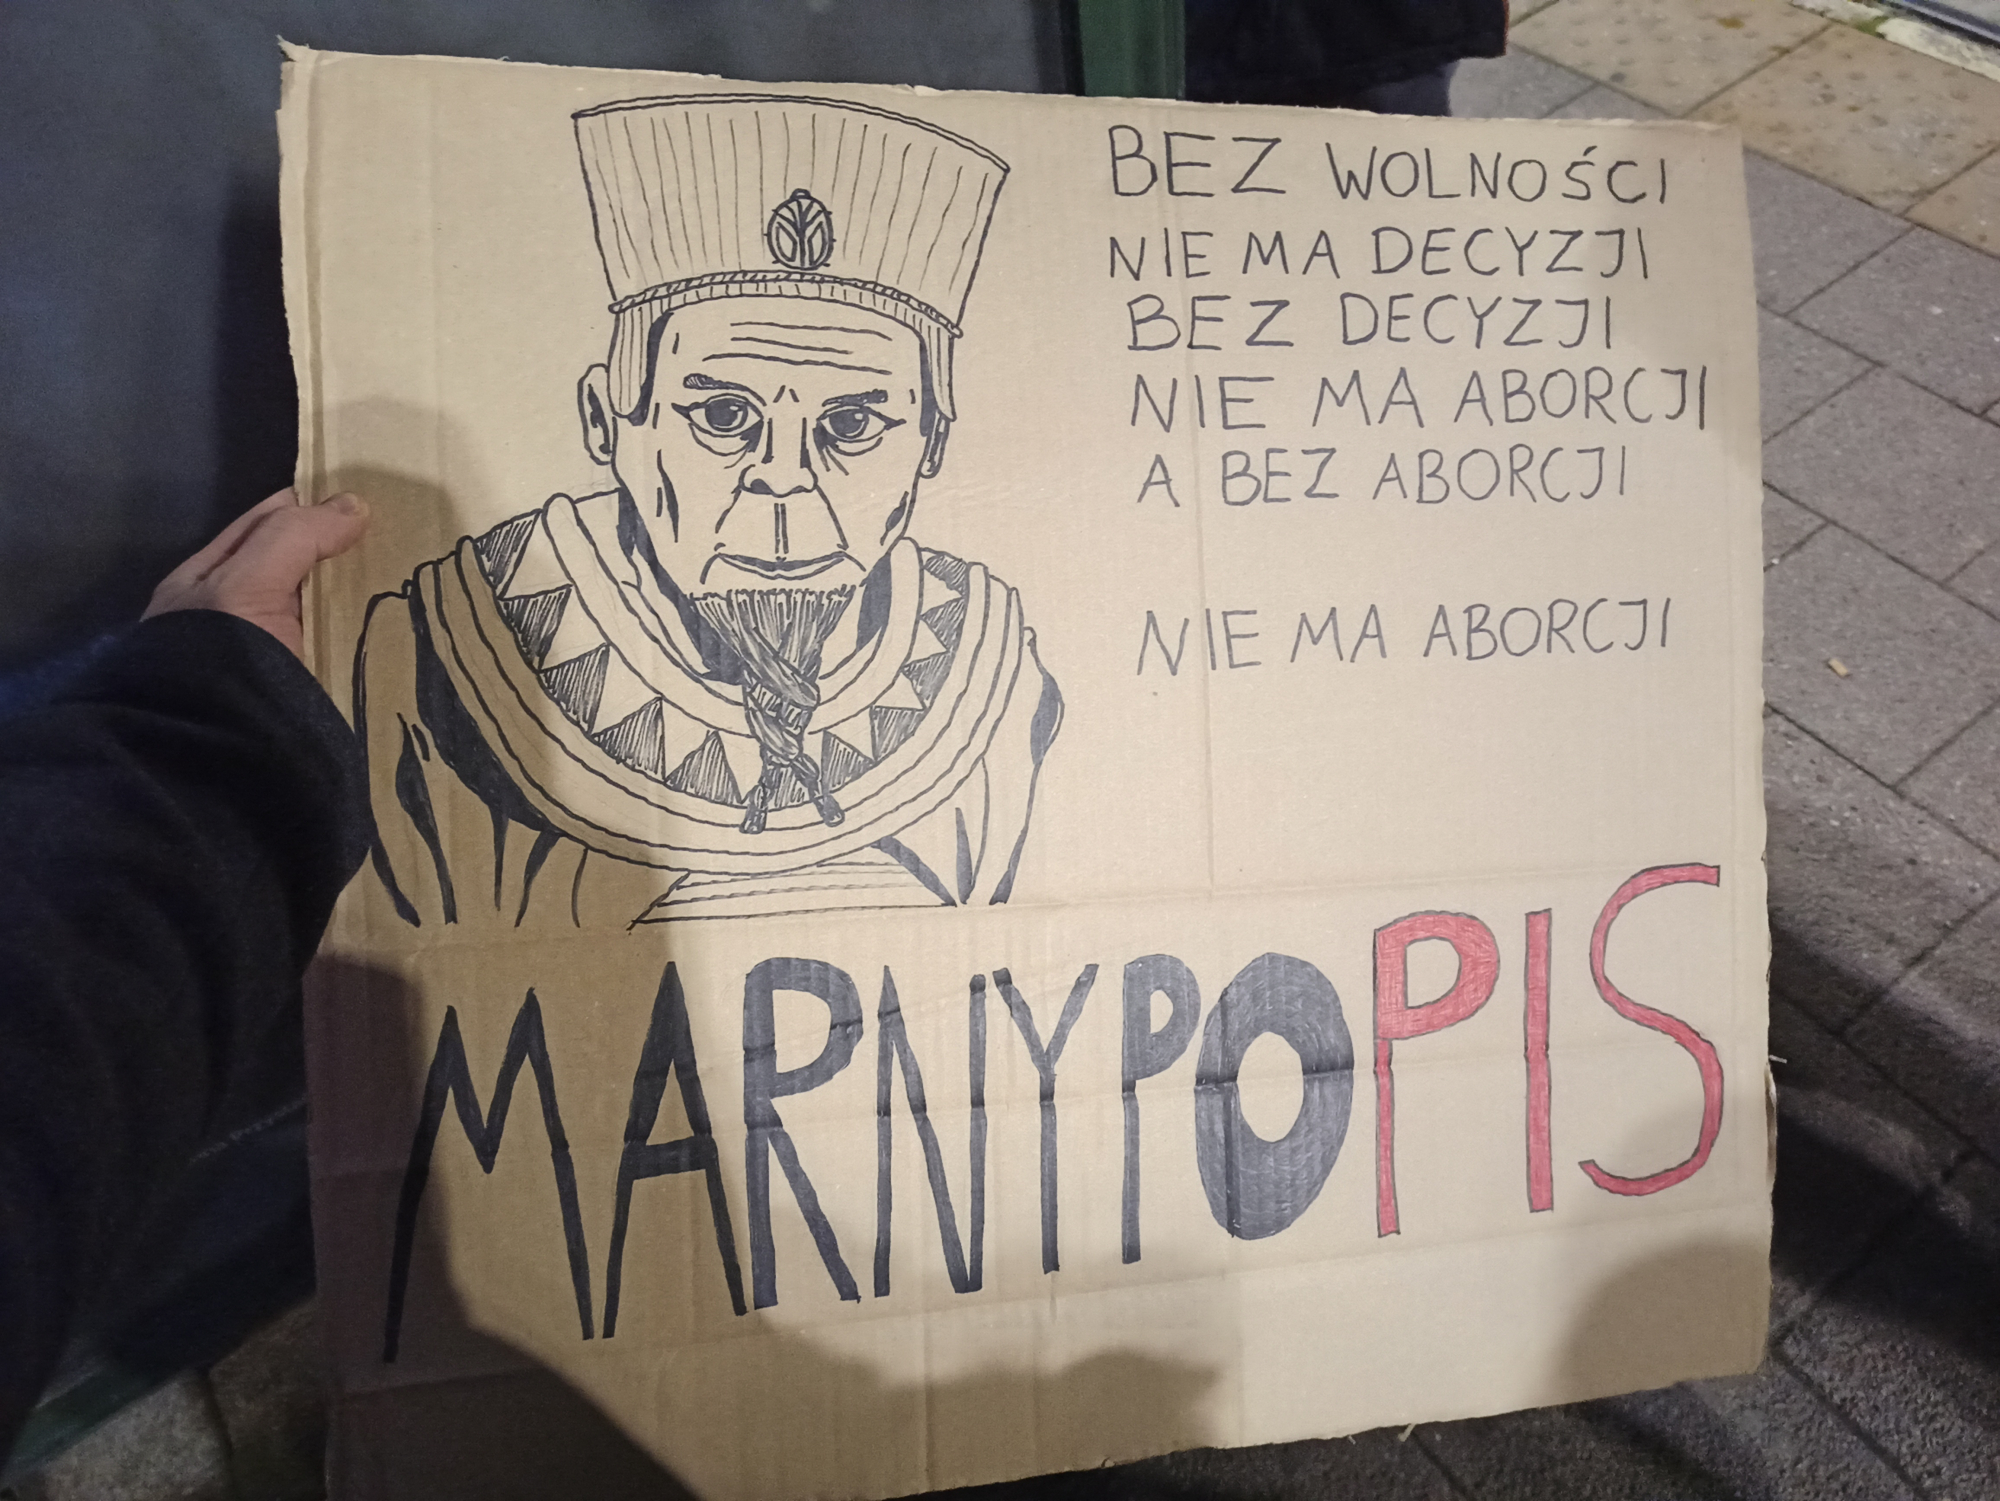 BEZ WOLNOŚCI
NIE MA DECYZJI
BEZ DECYZJI
NIE MA ABORCJI
A BEZ ABORCJI
NIE MA ABORCJI
MARNY POPIS